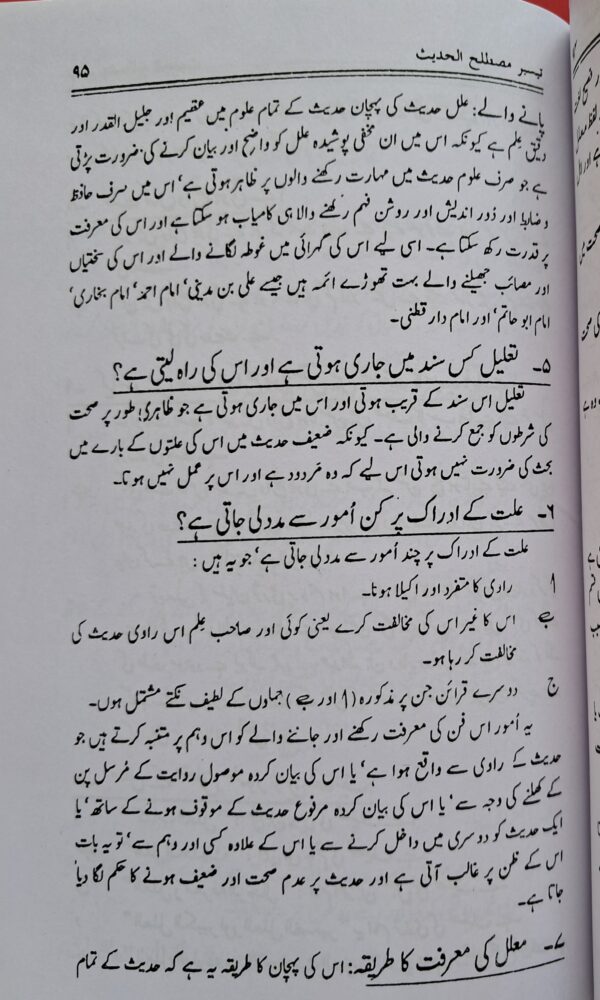 تیسیر مصطلح الحدیث ۹۵
پانے والے: علل حدیث کی پہچان حدیث کے تمام علوم میں عظیم اور جلیل القدر اور
دقیق علم ہے کیونکہ اس میں ان مخفی پوشیدہ علل کو واضح اور بیان کرنے کی ضرورت پڑتی
ہے جو صرف علوم حدیث میں مہارت رکھنے والوں پر ظاہر ہوتی ہے‘ اس میں صرف حافظ
و ضابط اور دُور اندیش اور روشن فہم رکھنے والا ہی کامیاب ہو سکتا ہے اور اس کی معرفت
پر قدرت رکھ سکتا ہے۔ اسی لیے اس کی گہرائی میں غوطہ لگانے والے اور اس کی سختیاں
اور مصائب جھیلنے والے بہت تھوڑے ائمہ ہیں جیسے علی بن مدینی‘ امام احمد‘ امام بخاری‘
امام ابو حاتم‘ اور امام دار قطنی۔
۵۔ تعلیل کس سند میں جاری ہوتی ہے اور اس کی راہ لیتی ہے؟
تعلیل اس سند کے قریب ہوتی اور اس میں جاری ہوتی ہے جو ظاہری طور پر صحت
کی شرطوں کو جمع کرنے والی ہے۔ کیونکہ ضعیف حدیث میں اس کی علتوں کے بارے میں
بحث کی ضرورت نہیں ہوتی اس لیے کہ وہ مَردود ہے اور اس پر عمل نہیں ہوتا۔
۶۔ علت کے ادراک پر کن اُمور سے مدد لی جاتی ہے؟
علت کے ادراک پر چند اُمور سے مدد لی جاتی ہے‘ جو یہ ہیں :
ا راوی کا متفرد اور اکیلا ہونا۔
ب اس کا غیر اس کی مخالفت کرے یعنی کوئی اور صاحب علم اس راوی حدیث کی
مخالفت کر رہا ہو۔
ج دوسرے قرائن جن پر مذکورہ (ا اور ب) جملوں کے لطیف نکتے مشتمل ہوں۔
یہ اُمور اس فن کی معرفت رکھنے اور جاننے والے کو اس وہم پر متنبہ کرتے ہیں جو
حدیث کے راوی سے واقع ہوا ہے‘ یا اس کی بیان کردہ موصول روایت کے مُرسل پن
کے کھلنے کی وجہ سے‘ یا اس کی بیان کردہ مرفوع حدیث کے موقوف ہونے کے ساتھ‘ یا
ایک حدیث کو دوسری میں داخل کرنے سے یا اس کے علاوہ کسی اور وہم سے‘ تو یہ بات
اس کے ظن پر غالب آتی ہے اور حدیث پر عدم صحت اور ضعیف ہونے کا حکم لگا دیا
جاتا ہے۔
۷۔ معلل کی معرفت کا طریقہ: اس کی پہچان کا طریقہ یہ ہے کہ حدیث کے تمام